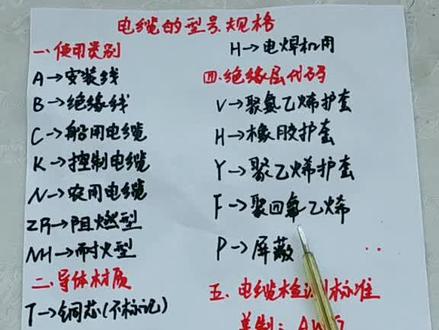 电缆的型号规格
一、使用类别
A→安装线
B→绝缘线
C→船用电缆
K→控制电缆
N→农用电缆
ZR→阻燃型
NH→耐火型
二、导体材质
T→铜芯(不标记)
H→电焊机用
四、绝缘层代码
V→聚氯乙烯护套
H→橡胶护套
Y→聚乙烯护套
F→聚四氟乙烯
P→屏蔽
五、电缆检测标准
美制: